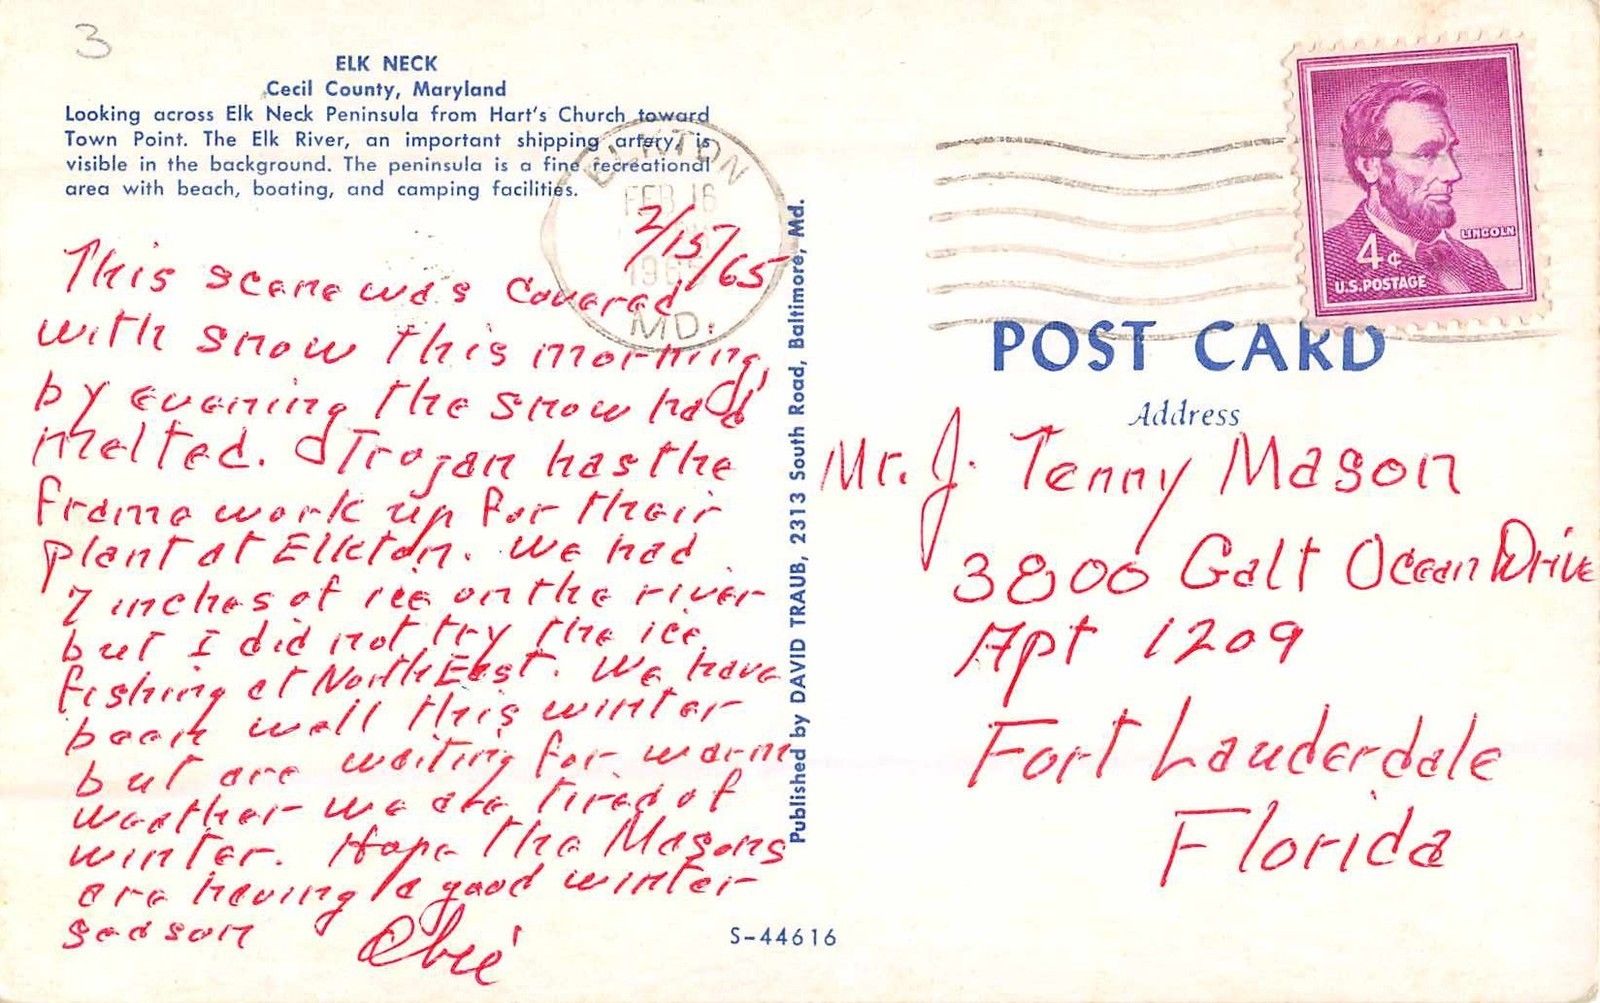 3
ELK NECK
Cecil County, Maryland
Looking across Elk Neck Peninsula from Hart's Church toward
Town Point. The Elk River, an important shipping artery, is
visible in the background. The peninsula is a fine recreational
area with beach, boating, and camping facilities.
ELKTON
FEB 16
1965
MD.
2/15/65
This scene was covered
with snow this morning,
by evening the snow had
melted. Trojan has the
frame work up for their
plant at Elkton. We had
7 inches of ice on the river
but I did not try the ice
fishing at North East. We have
been well this winter
but are waiting for warm
weather we are tired of
winter. Hope the Masons
are having a good winter
season
Published by DAVID TRAUB, 2313 South Road, Baltimore, Md.
S-44616
LINCOLN
4¢
U.S. POSTAGE
POST CARD
Address
Mr. J. Tenny Mason
3800 Galt Ocean Drive
Apt 1209
Fort Lauderdale
Florida